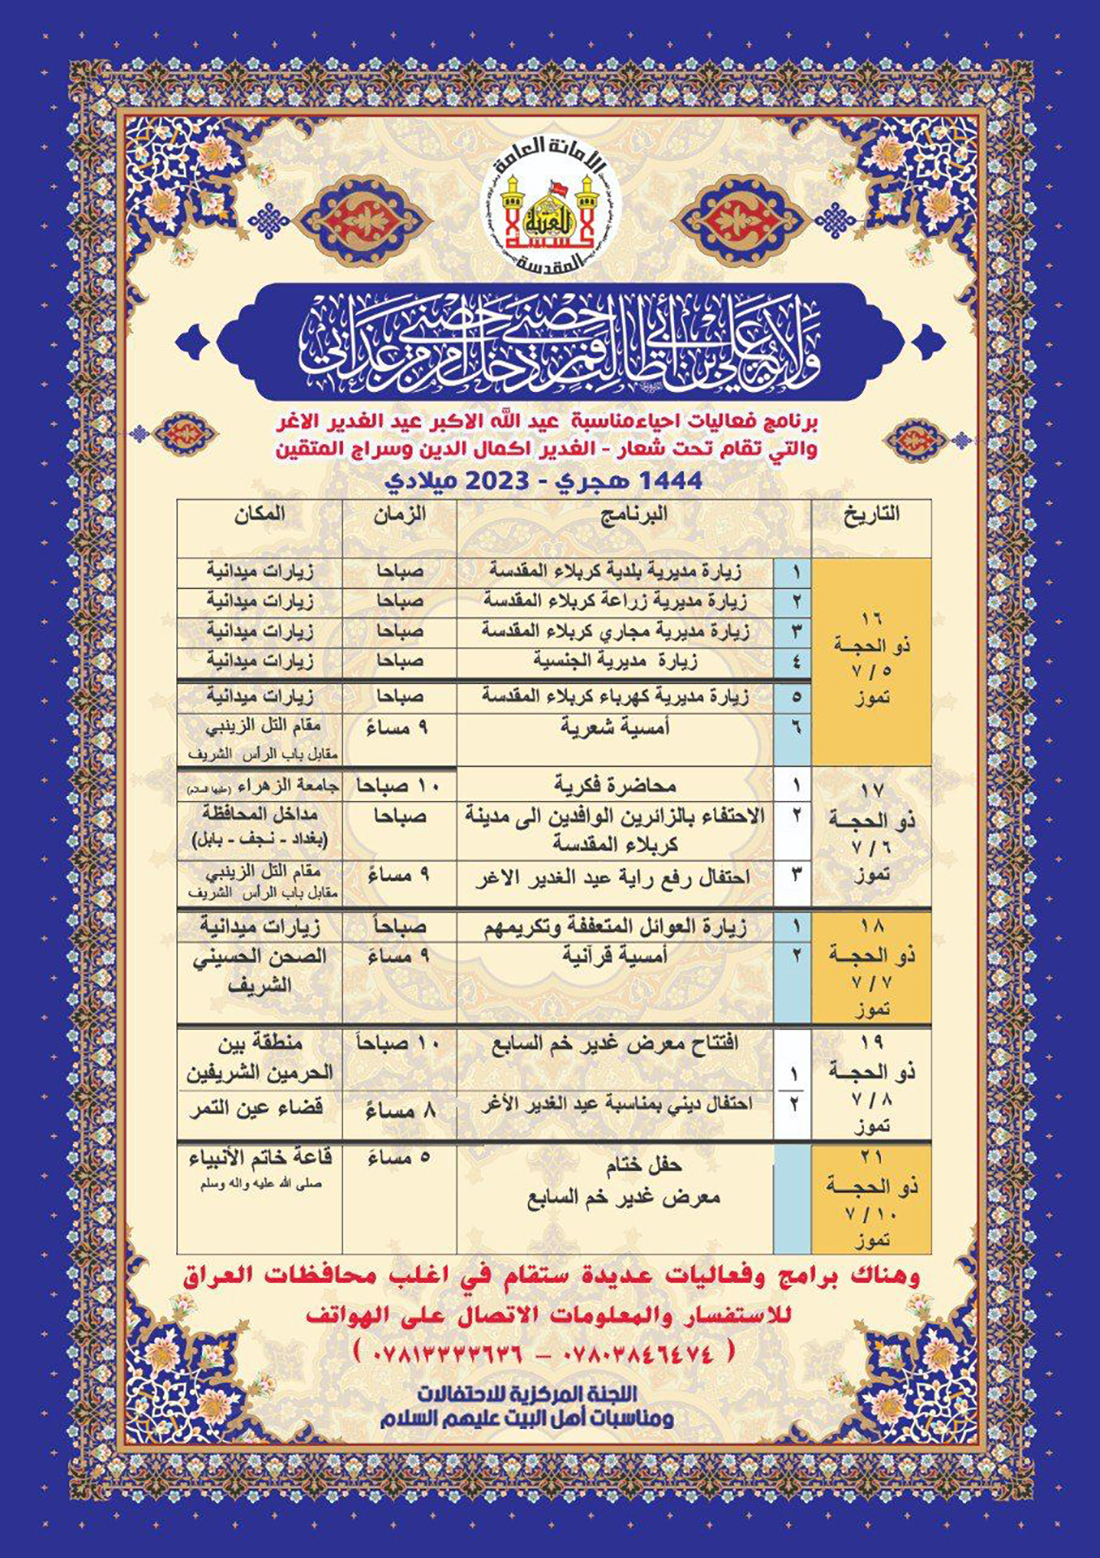 الأمانة العامة
للعتبة
المقدسة
ولاية علي بن أبي طالب حصني فمن دخل حصني أمن من عذابي
برنامج فعاليات احياءمناسبة عيد الله الاكبر عيد الغدير الاغر
والتي تقام تحت شعار - الغدير اكمال الدين وسراج المتقين
1444 هجري - 2023 ميلادي
التاريخ البرنامج الزمان المكان
١٦
ذو الحجـــة
٧ / ٥
تموز
١ زيارة مديرية بلدية كربلاء المقدسة صباحا زيارات ميدانية
٢ زيارة مديرية زراعة كربلاء المقدسة صباحا زيارات ميدانية
٣ زيارة مديرية مجاري كربلاء المقدسة صباحا زيارات ميدانية
٤ زيارة مديرية الجنسية صباحا زيارات ميدانية
٥ زيارة مديرية كهرباء كربلاء المقدسة صباحا زيارات ميدانية
٦ أمسية شعرية ٩ مساءً مقام التل الزينبي
مقابل باب الرأس الشريف
١٧
ذو الحجـــة
٧ / ٦
تموز
١ محاضرة فكرية ١٠ صباحا جامعة الزهراء (عليها السلام)
٢ الاحتفاء بالزائرين الوافدين الى مدينة صباحا مداخل المحافظة
كربلاء المقدسة (بغداد - نجف - بابل)
٣ احتفال رفع راية عيد الغدير الاغر ٩ مساءً مقام التل الزينبي
مقابل باب الرأس الشريف
١٨
ذو الحجـــة
٧ / ٧
تموز
١ زيارة العوائل المتعففة وتكريمهم صباحاً زيارات ميدانية
٢ أمسية قرآنية ٩ مساءً الصحن الحسيني
الشريف
١٩
ذو الحجـــة
٧ / ٨
تموز
١ افتتاح معرض غدير خم السابع ١٠ صباحاً منطقة بين
الحرمين الشريفين
٢ احتفال ديني بمناسبة عيد الغدير الأغر ٨ مساءً قضاء عين التمر
٢١
ذو الحجـــة
٧ / ١٠
تموز
حفل ختام ٥ مساءً قاعة خاتم الأنبياء
معرض غدير خم السابع صلى الله عليه واله وسلم
وهناك برامج وفعاليات عديدة ستقام في اغلب محافظات العراق
للاستفسار والمعلومات الاتصال على الهواتف
( ٠٧٨٠٣٨٤٦٤٧٤ – ٠٧٨١٣٣٣٣٦٣٦ )
اللجنة المركزية للاحتفالات
ومناسبات أهل البيت عليهم السلام